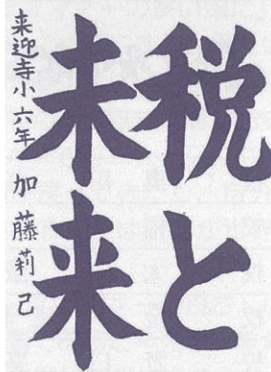 税と
未来
来迎寺小六年 加藤莉己